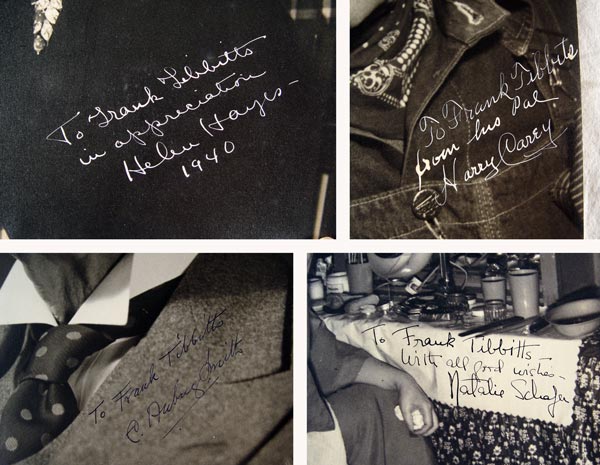 To Frank Tibbitts
in appreciation
Helen Hayes-
1940
To Frank Tibbits
from his Pal
Harry Carey
To Frank Tibbitts
C. Aubrey Smith
To Frank Tibbitts
With all good wishes-
Natalie Schafer